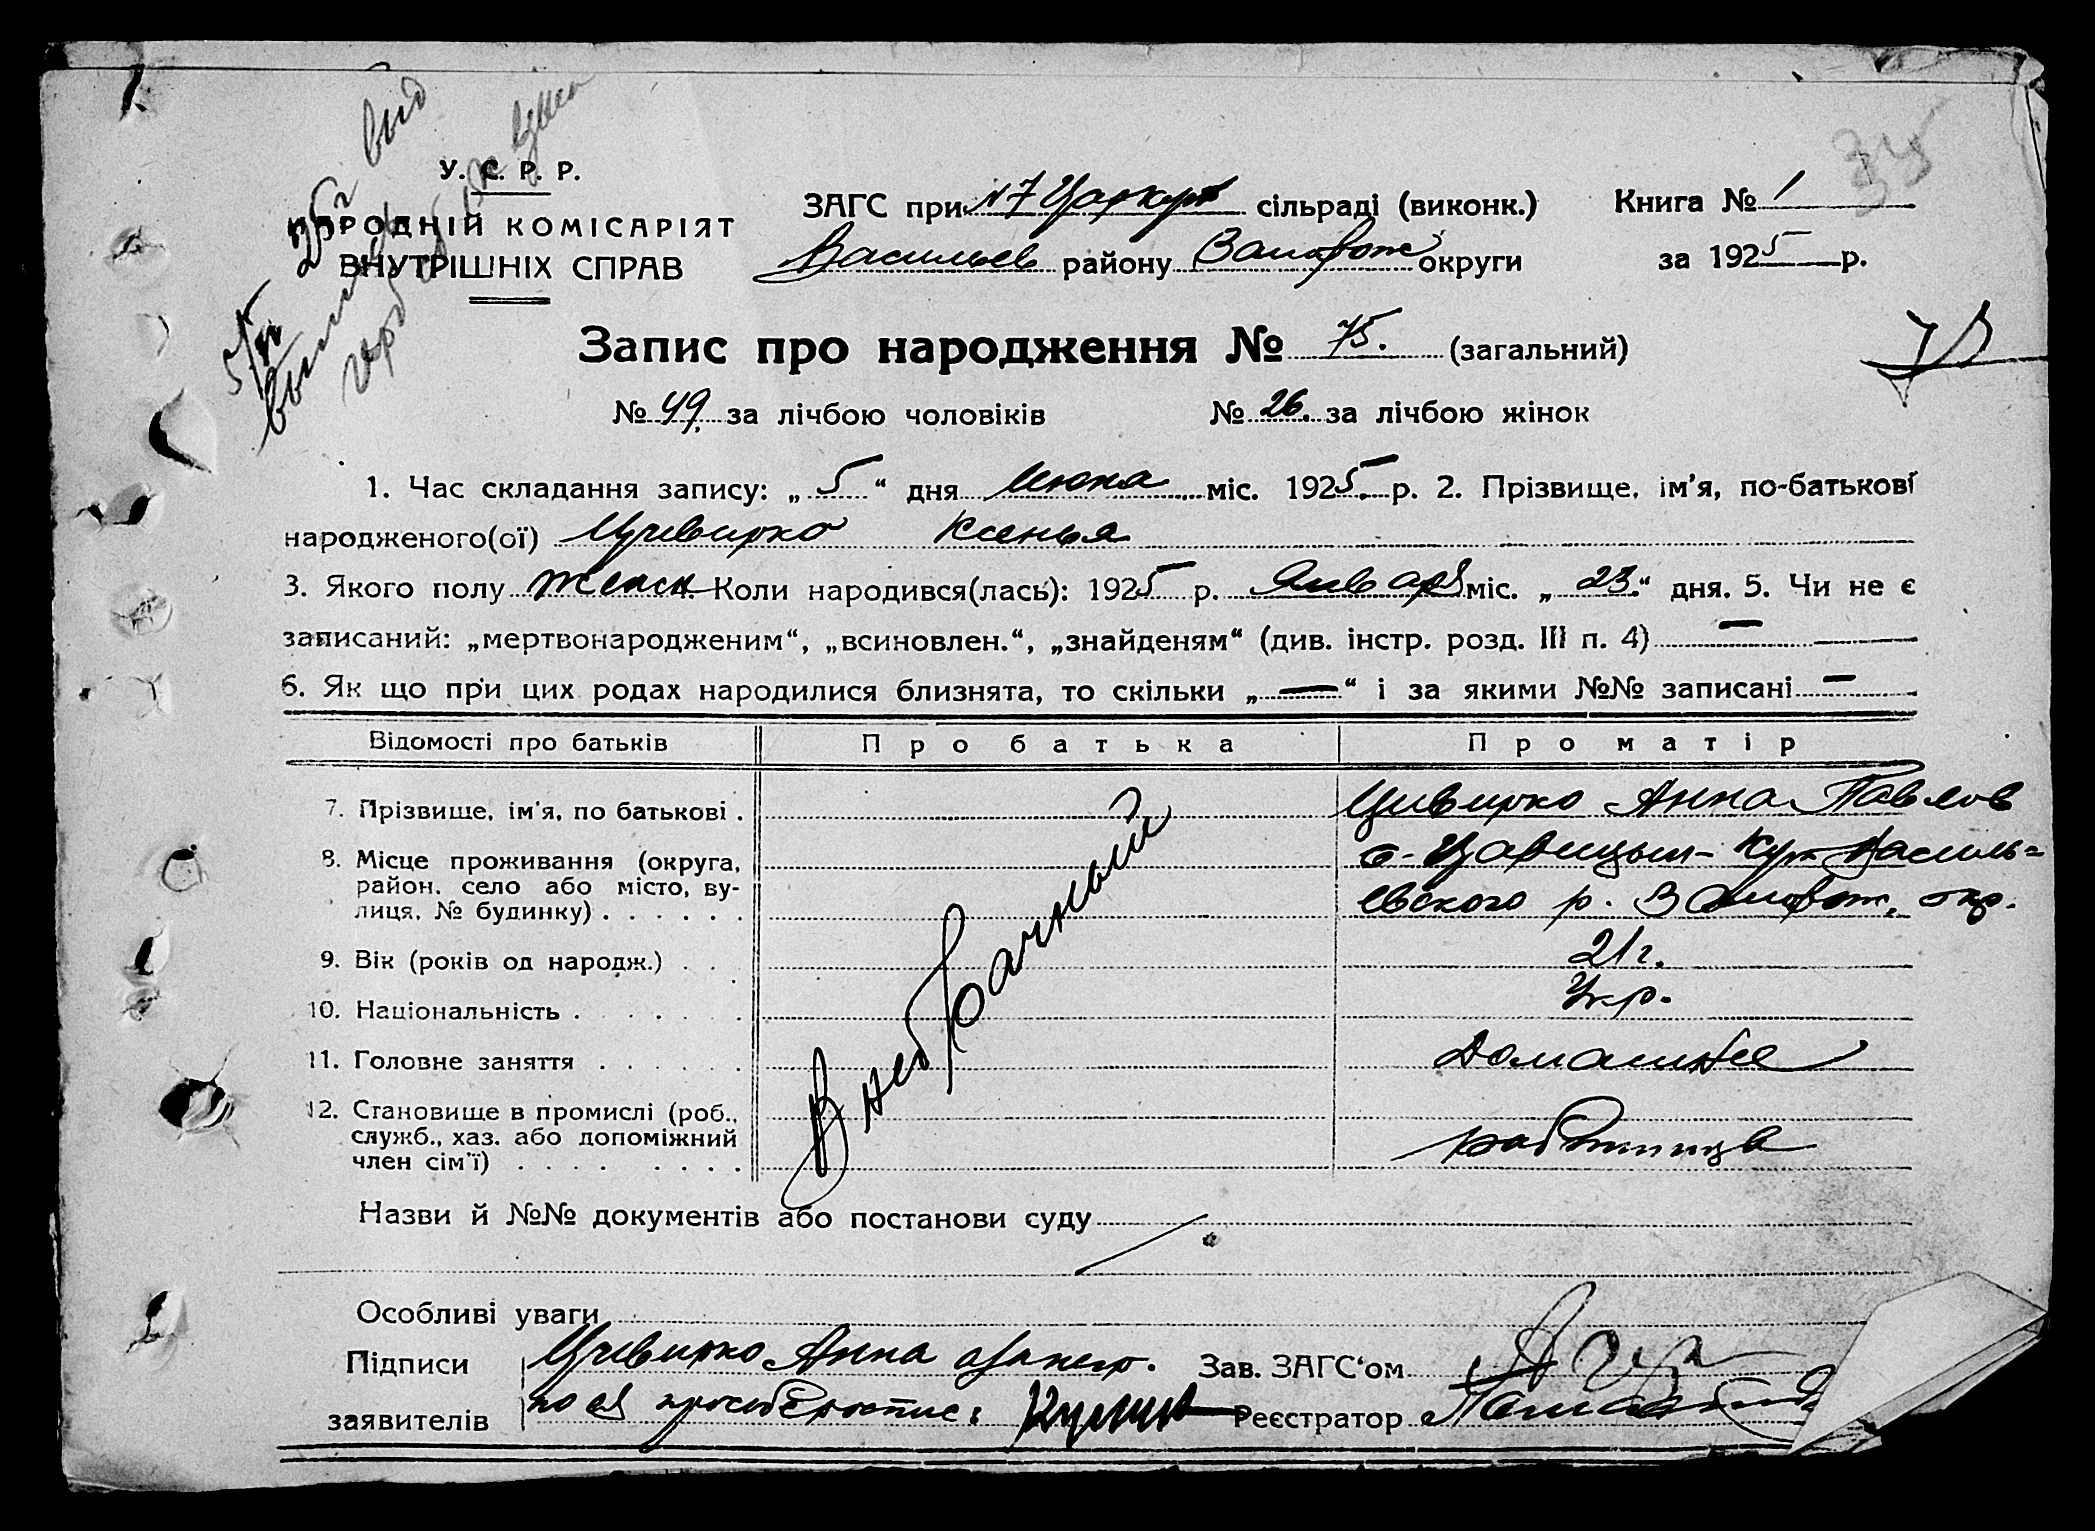 35
У. С. Р. Р.
НАРОДНІЙ КОМІСАРІЯТ
ВНУТРІШНІХ СПРАВ
ЗАГС при №7 сільраді (виконк.) Книга № 1
Васильев району Запорож округи за 1925 р.
Запис про народження № 75. (загальний)
№ 49. за лічбою чоловіків № 26. за лічбою жінок
1. Час складання запису: „ 5 “ дня Июня міс. 1925 р. 2. Прізвище, ім'я, по-батькові
народженого(ої) Цивирко Ксенья
3. Якого полу женск Коли народився(лась): 1925 р. Января міс. „ 23. “ дня. 5. Чи не є
записаний: „мертвонародженим“, „всиновлен.“, „знайденям“ (див. інстр. розд. III п. 4) —
6. Як що при цих родах народилися близнята, то скільки „ — “ і за якими №№ записані —
Відомості про батьків Про батька Про матір
7. Прізвище, ім'я, по батькові . Цивирко Анна Павлов
8. Місце проживання (округа, с. Царицын-Кут Василь=
район, село або місто, ву-
лиця, № будинку) . . . . . . евского р. Запорож. окр.
9. Вік (років од народж.) . . . 21 г.
10. Національність . . . . . . Укр.
11. Головне заняття . . . . . . Домашняя
12. Становище в промислі (роб.,
служб., хаз. або допоміжний работница
член сім'ї) . . . . . . . .
Внебрачный
Назви й №№ документів або постанови суду
Особливі уваги
Підписи Цивирко Анна Зав. ЗАГС'ом
заявителів по ея просьбе роспис: Реєстратор